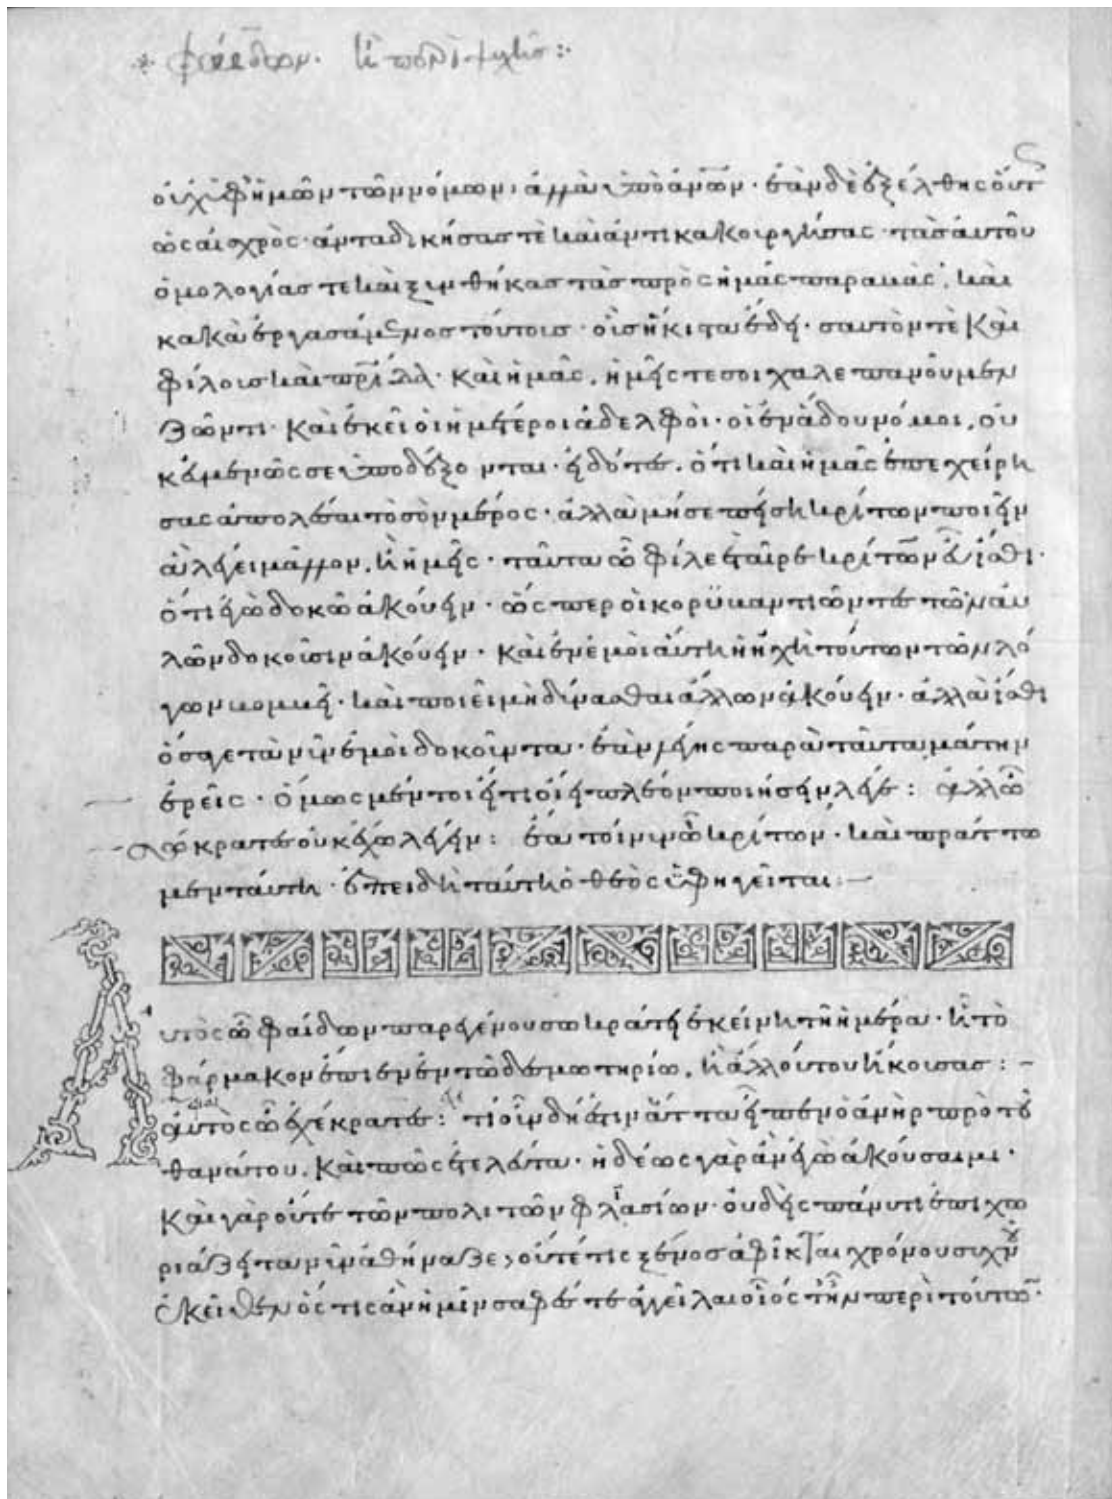 φαίδων. ἢ περὶ ψυχῆς :·
οὐχ ὑφ' ἡμῶν τῶν νόμων· ἀλλὰ ὑπὸ ἀνων· ἐὰν δὲ ἐξέλθης οὕτ
ως αἰσχρῶς· ἀνταδικήσας τὲ καὶ ἀντικακουργήσας· τὰς αυτοῦ
ὁμολογίας τε καὶ ξυνθήκας τὰς πρὸς ἡμᾶς παραβὰς, καὶ
κακὰ ἐργασάμενος τούτοις· οἷς ἥκιστα ἔδει· σαυτὸν τὲ καὶ
φίλοις καὶ πρίδα· καὶ ἡμᾶς, ἡμεῖς τε σοι χαλεπανοῦμεν
ζῶντι· καὶ ἐκεῖ οἱ ἡμέτεροι ἀδελφοὶ· οἱ ἐν ἅδου νόμοι, οὐ
κ εὐμενῶς σε ὑποδέξονται· εἰδότες, ὅτι καὶ ἡμᾶς ἐπεχείρη
σας ἀπολέσαι τὸ σὸν μέρος· ἀλλὰ μή σε πείση κρίτων ποιεῖν
ἃ λέγει μᾶλλον, ἢ ἡμεῖς· ταῦτα ὦ φίλε ἑταῖρε κρίτων εὖ ἴσθι·
ὅτι ἐγὼ δοκῶ ἀκούειν· ὥς περ οἱ κορυβαντιῶντες τῶν αὐ
λῶν δοκοῦσιν ἀκούειν· καὶ ἐν ἐμοὶ αὕτη ἡ ἠχὴ τούτων τῶν λό
γων βομβεῖ· καὶ ποιεῖ μὴ δύνασθαι ἄλλων ἀκούειν· ἀλλὰ ἴσθι
ὅσα γε τὰ νῦν ἐμοὶ δοκοῦντα· ἐὰν λέγης παρὰ ταῦτα μάτην
ἐρεῖς· ὅμως μέντοι εἴ τι οἴει πλέον ποιήσειν λέγε : ἀλλ' ὦ
σώκρατες οὐκ ἔχω λέγειν : ἔα τοίνυν ὦ κρίτων· καὶ πράττω
μεν ταύτη· ἐπειδὴ ταύτη ὁ θεὸς ὑφηγεῖται :—
Αὐτὸς ὦ φαίδων παρεγένου σωκράτει ἐκείνη τῆ ἡμέρα· ἧ τὸ
φάρμακον ἔπιεν ἐν τῶ δεσμωτηρίω, ἢ ἄλλου του ἤκουσας :—
αὐτὸς ὦ ἐχέκρατες : τί οὖν δή ἐστιν ἅττα εἶπεν ὁ ἀνὴρ πρὸ τοῦ
θανάτου, καὶ πῶς ἐτελεύτα· ἡδέως γὰρ ἂν ἐγὼ ἀκούσαιμι·
καὶ γὰρ οὔτε τῶν πολιτῶν φλιασίων· οὐδεὶς πάνυ τι ἐπιχω
ριάζει τανῦν ἀθήναζε, οὔτέ τις ξένος ἀφῖκται χρόνου συχνοῦ
ἐκεῖθεν ὅς τις ἂν ἡμῖν σαφές τι ἀγγεῖλαι οἷός τ' ἦν περὶ τούτων·